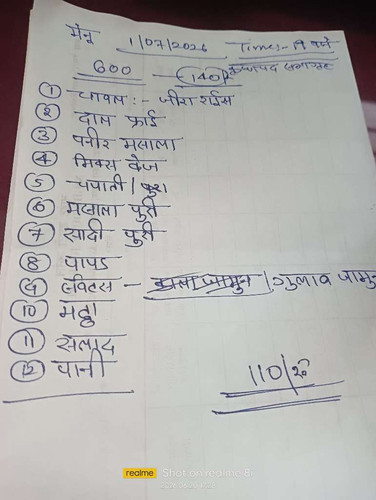 मेनू 1/07/2026 Time:- 19 बजे
600 — 140/-
① चावल :- जीरा राईस
② दाल फ्राई
③ पनीर मसाला
④ मिक्स वेज
⑤ चपाती /
⑥ मसाला पुरी
⑦ सादी पुरी
⑧ पापड
⑨ स्विटस - काला जामुन / गुलाब जामुन
⑩ मठ्ठा
⑪ सलाद
⑫ पानी
110/रु
realme Shot on realme